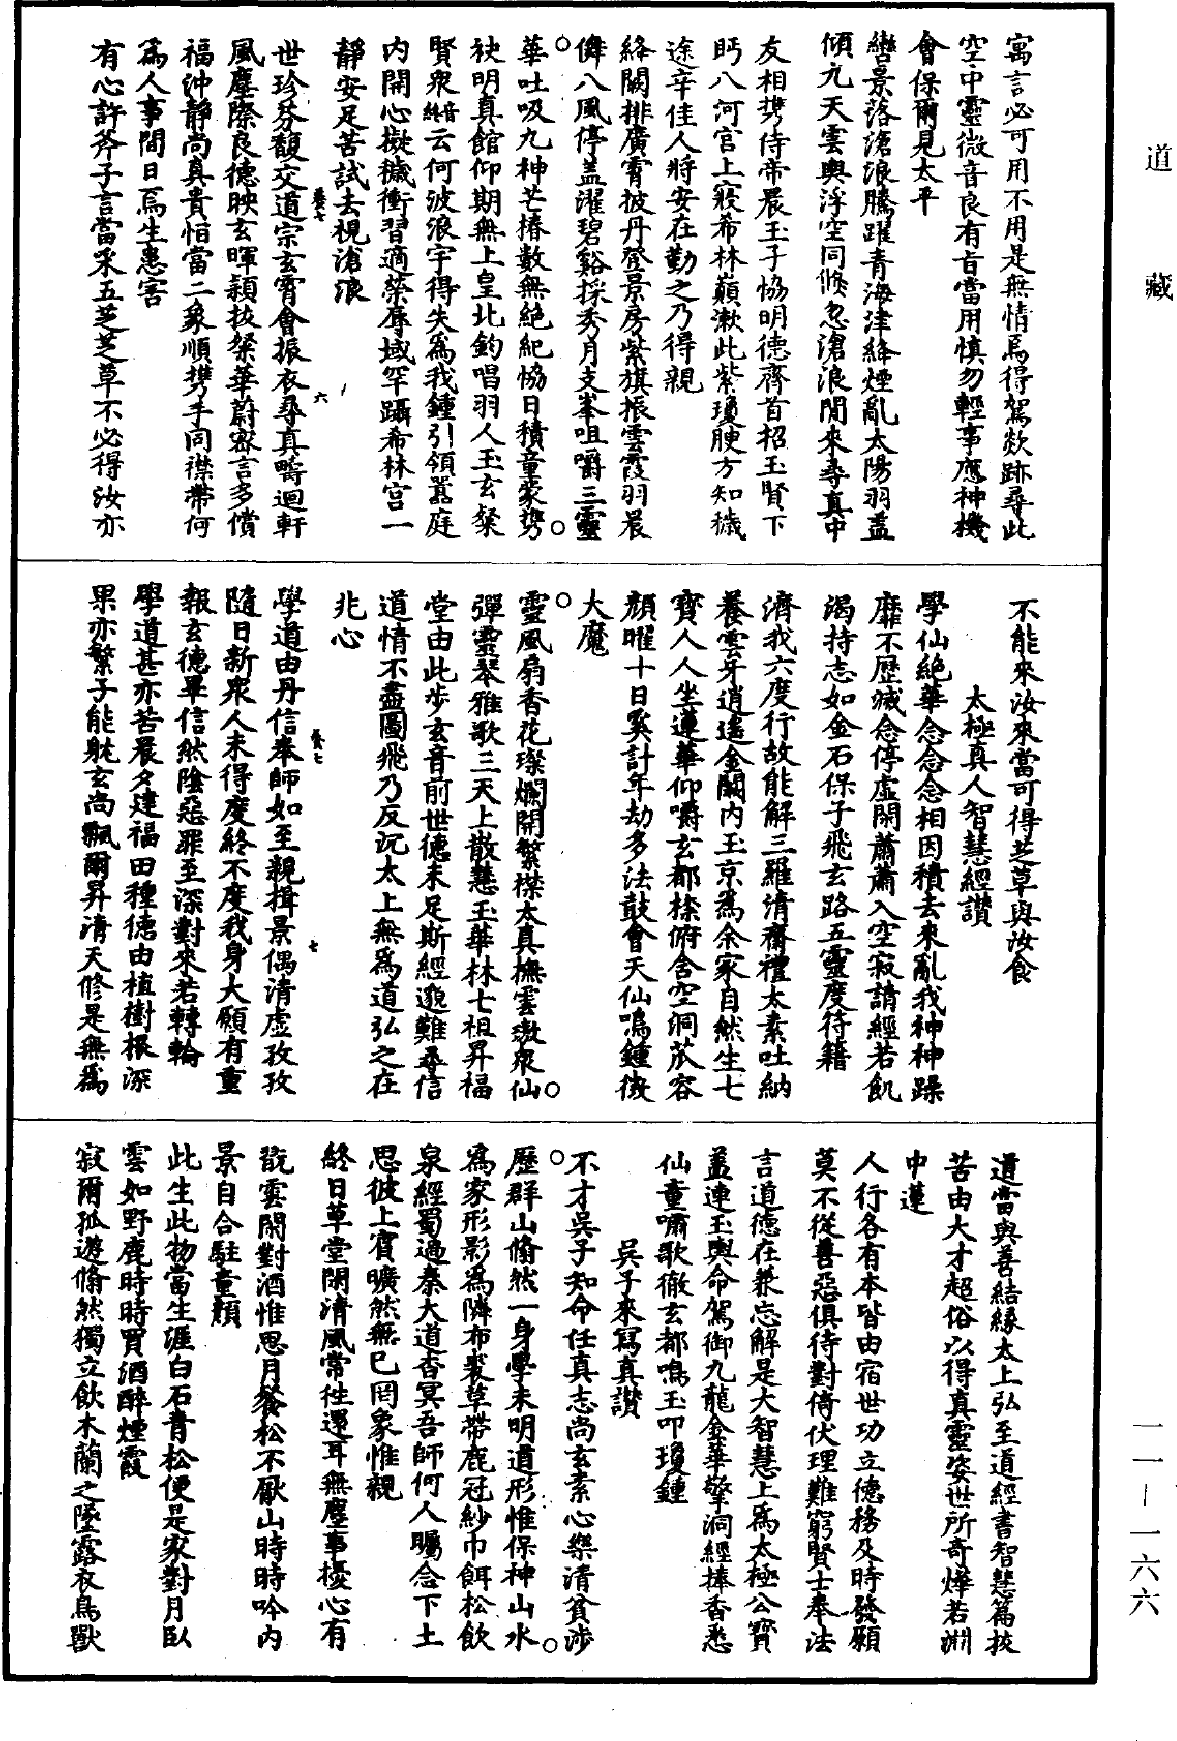 道藏
寓言必可用不用是無情焉得駕欻跡尋此
空中靈微音良有旨當用慎勿輕事應神機
會保爾見太平
巒景落滄浪騰躍青海津絳煙亂太陽羽蓋
傾九天雲輿浮空同倏忽滄浪間來尋真中
友相攜侍帝晨玉子協明德齊首招玉賢下
眄八河宮上寢希林巔漱此紫瓊腴方知穢
途辛佳人將安在勤之乃得親
絡闕排廣霄披丹登景房紫旗振雲霞羽晨
儛八風停蓋濯碧谿採秀月支峯咀嚼三靈
華吐吸九神芒椿數無絕紀協日積童蒙攜
袂明真館仰期無上皇北鈞唱羽人玉玄粲
賢眾緇云何波浪宇得失為我鍾引領囂庭
內開心擬穢衝習適榮辱域罕躡希林宮一
靜安足苦試去視滄浪
世珍芬馥交道宗玄霄會振衣尋真疇迴軒
風塵際良德映玄暉穎拔粲華蔚密言多償
福沖靜尚真貴恒當二象順攜手同襟帶何
為人事間日焉生患害
有心許斧子言當采五芝芝草不必得汝亦
不能來汝來當可得芝草與汝食
太極真人智慧經讚
學仙絕華念念念相因積去來亂我神神躁
靡不歷滅念停虛閑蕭蕭入空寂請經若飢
渴持志如金石保子飛玄路五靈度符籍
濟我六度行故能解三羅清齋禮太素吐納
養雲牙逍遙金闕內玉京為余家自然生七
寶人人坐蓮華仰嚼玄都㮏俯含空洞苽容
顏曜十日奚計年劫多法鼓會天仙鳴鍾徵
大魔
靈風扇香花璨爛開繁襟太真撫雲璈眾仙
彈靈琴雅歌三天上散慧玉華林七祖昇福
堂由此步玄音前世德未足斯經邈難尋信
道情不盡圖飛乃反沉太上無為道弘之在
兆心
學道由丹信奉師如至親揖景偶清虛孜孜
隨日新眾人未得度終不度我身大願有重
報玄德畢信然陰惡罪至深對來若轉輪
學道甚亦苦晨夕建福田種德由植樹根深
果亦繁子能躭玄尚飄爾昇清天修是無為
道當與善結緣太上弘至道經書智慧篇拔
苦由大才超俗以得真靈姿世所奇燁若淵
中蓮
人行各有本皆由宿世功立德務及時發願
莫不從善惡俱待對倚伏理難窮賢士奉法
言道德在兼忘解是大智慧上為太極公寶
蓋連玉輿命駕御九龍金華擎洞經捧香悉
仙童嘯歌徹玄都鳴玉叩瓊鍾
吳子來寫真讚
不才吳子知命任真志尚玄素心樂清貧涉
歷群山翛然一身學未明道形惟保神山水
為家形影為隣布裘草帶鹿冠紗巾餌松飲
泉經蜀過秦大道杳冥吾師何人矚念下土
思彼上賓曠然無已罔象惟親
終日草堂閑清風常往還耳無塵事擾心有
翫雲閑對酒惟思月餐松不厭山時時吟內
景自合駐童顏
此生此物當生涯白石青松便是家對月臥
雲如野鹿時時買酒醉煙霞
寂爾孤遊翛然獨立飲木蘭之墜露衣鳥獸
一一-一六六